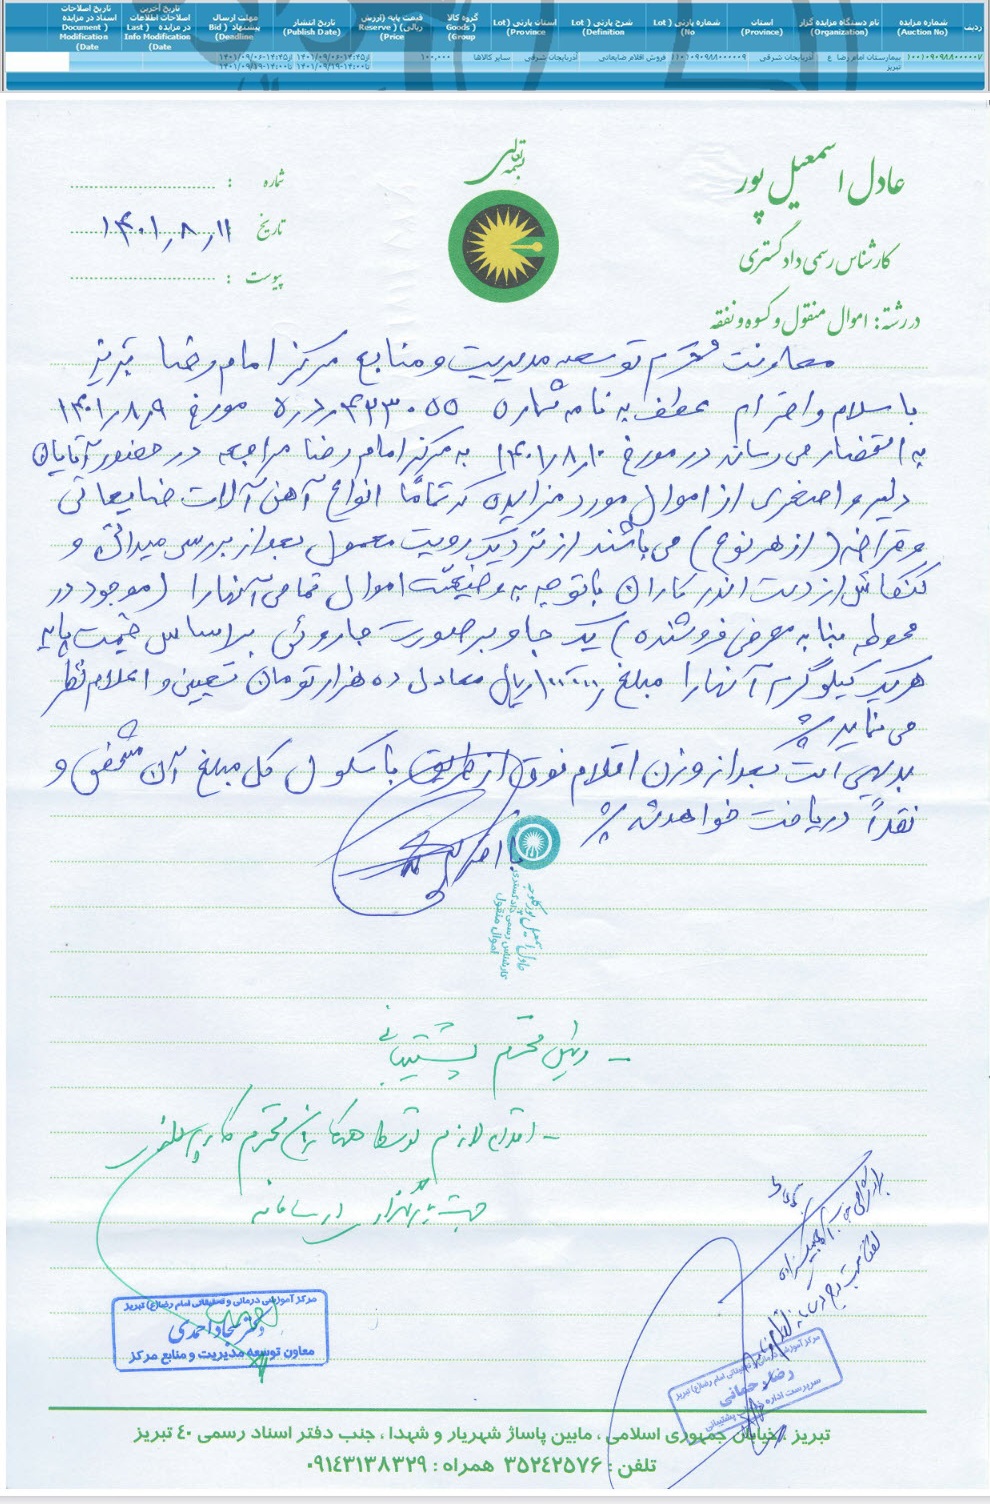 ردیف
شماره مزایده (Auction No)
نام دستگاه مزایده گزار (Organization)
استان (Province)
شماره پارتی ( Lot No)
شرح پارتی ( Lot Definition)
استان پارتی ( Lot Province)
گروه کالا ( Goods Group)
قیمت پایه (ارزش ریالی) ( Reserve Price)
تاریخ انتشار (Publish Date)
مهلت ارسال پیشنهاد ( Bid Deadline)
تاریخ آخرین اصلاحات اطلاعات در مزایده ( Last Info Modification Date)
تاریخ اصلاحات اسناد در مزایده ( Document Modification Date)
بیمارستان امام رضا ع تبریز
آذربایجان شرقی
فروش اقلام ضایعاتی
آذربایجان شرقی
سایر کالاها
۱۰۰,۰۰۰
از۱۴:۴۵-۱۴۰۱/۰۹/۰۶ تا۱۴:۰۰-۱۴۰۱/۰۹/۱۹
بسمه تعالی
عادل اسمعیل پور
کارشناس رسمی دادگستری
در رشته: اموال منقول و کسوه و نفقه
شماره :
تاریخ ۱۴۰۱/۸/۱۱
پیوست :
معاونت محترم توسعه مدیریت و منابع مرکز امام رضا تبریز
با سلام و احترام عطف به نامه شماره مورخ ۱۴۰۱/۸/۹
به استحضار می رساند در مورخ ۱۴۰۱/۸/۱۰ به مرکز امام رضا مراجعه در حضور آقایان
دلیر و اصغری از اموال مورد مزایده که تماماً انواع آهن آلات ضایعاتی
و قراضه (از هر نوع) می باشند از نزدیک رویت معمول بعد از بررسی میدانی و
کنکاش از دست اندرکاران با توجه به وضعیت اموال تمامی آنها را (موجود در
محوطه بنا به معرفی فروشنده) یک جا و بصورت جاروئی براساس قیمت پایه
هر یک کیلوگرم آنها را مبلغ ۱۰۰٫۰۰۰ ریال معادل ده هزار تومان تعیین و اعلام نظر
می نماید
بدیهی است بعد از وزن اقلام فوق از طریق باسکول کل مبلغ آن مشخص و
نقداً دریافت خواهد شد
با احترام
عادل اسمعیل پور
کارشناس رسمی دادگستری
اموال منقول
- رئیس محترم پشتیبانی
- اقدام لازم توسط همکاران محترم کارپردازی
جهت بارگزاری در سامانه
مرکز آموزشی درمانی و تحقیقاتی امام رضا(ع) تبریز
معاون توسعه مدیریت و منابع مرکز
مرکز آموزشی درمانی و تحقیقاتی امام رضا(ع) تبریز
رضا رحمانی
سرپرست اداره پشتیبانی
تبریز ، خیابان جمهوری اسلامی ، مابین پاساژ شهریار و شهدا ، جنب دفتر اسناد رسمی ۴۰ تبریز
تلفن : ۳۵۲۴۲۵۷۶ همراه : ۰۹۱۴۳۱۳۸۳۲۹